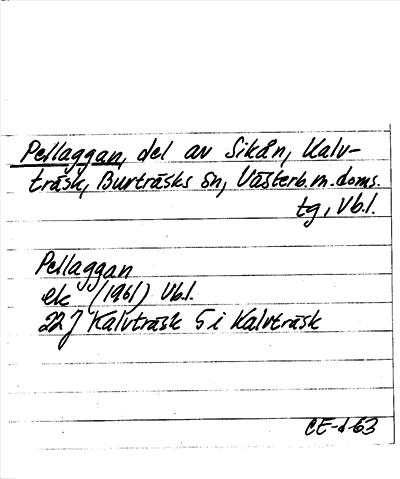 Pellaggan, del av Sikån, Kalv-
träsk, Burträsks sn, Västerb. m. doms.
tg, Vb.l.
Pellaggan
ek (1961) Vb.l.
22 J Kalvträsk 5 i Kalvträsk
CE-d-63